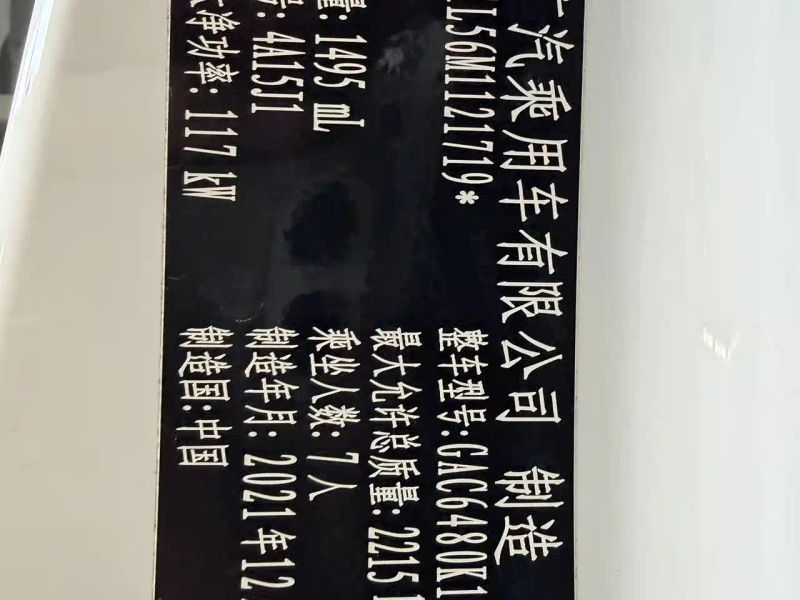 广汽乘用车有限公司 制造
L56M1121719*
整车型号:GAC6480K1
量: 1495 mL
最大允许总质量: 2215
号: 4A15J1
乘坐人数: 7人
大净功率: 117 kW
制造年月: 2021年12
制造国: 中国